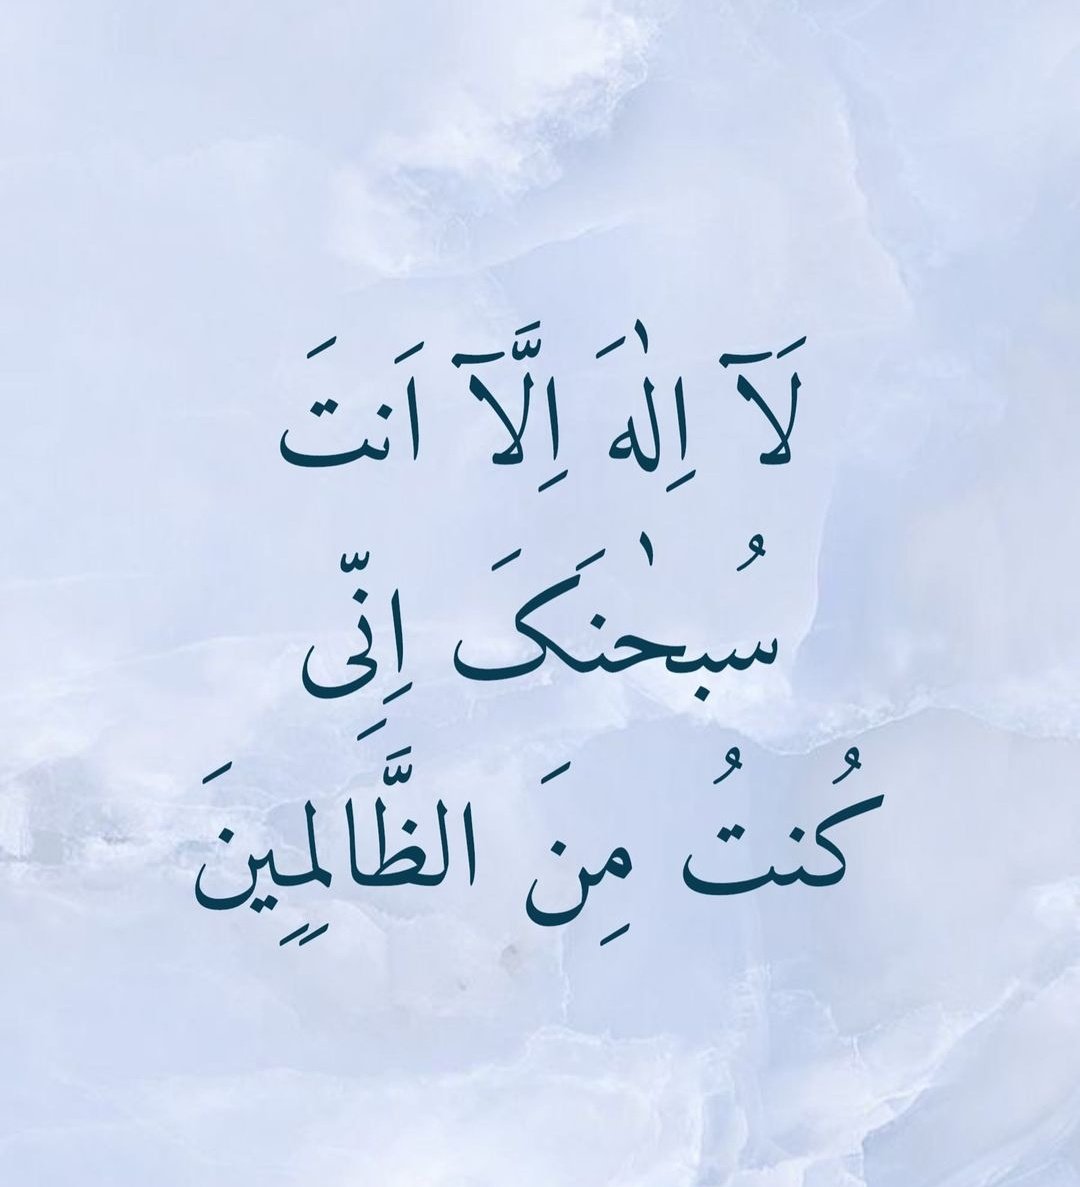 لَآ اِلٰهَ اِلَّآ اَنتَ
سُبحٰنَکَ اِنِّی
کُنتُ مِنَ الظَّالِمِینَ